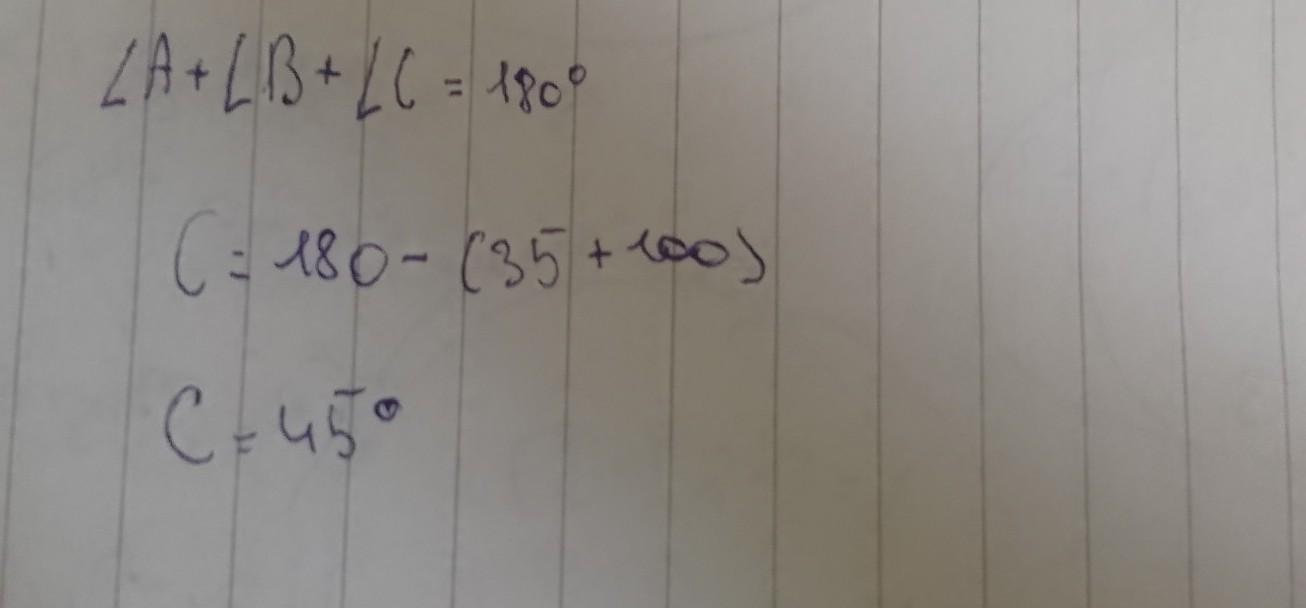 ∠A+∠B+∠C = 180°
C = 180 - (35 + 100)
C = 45°